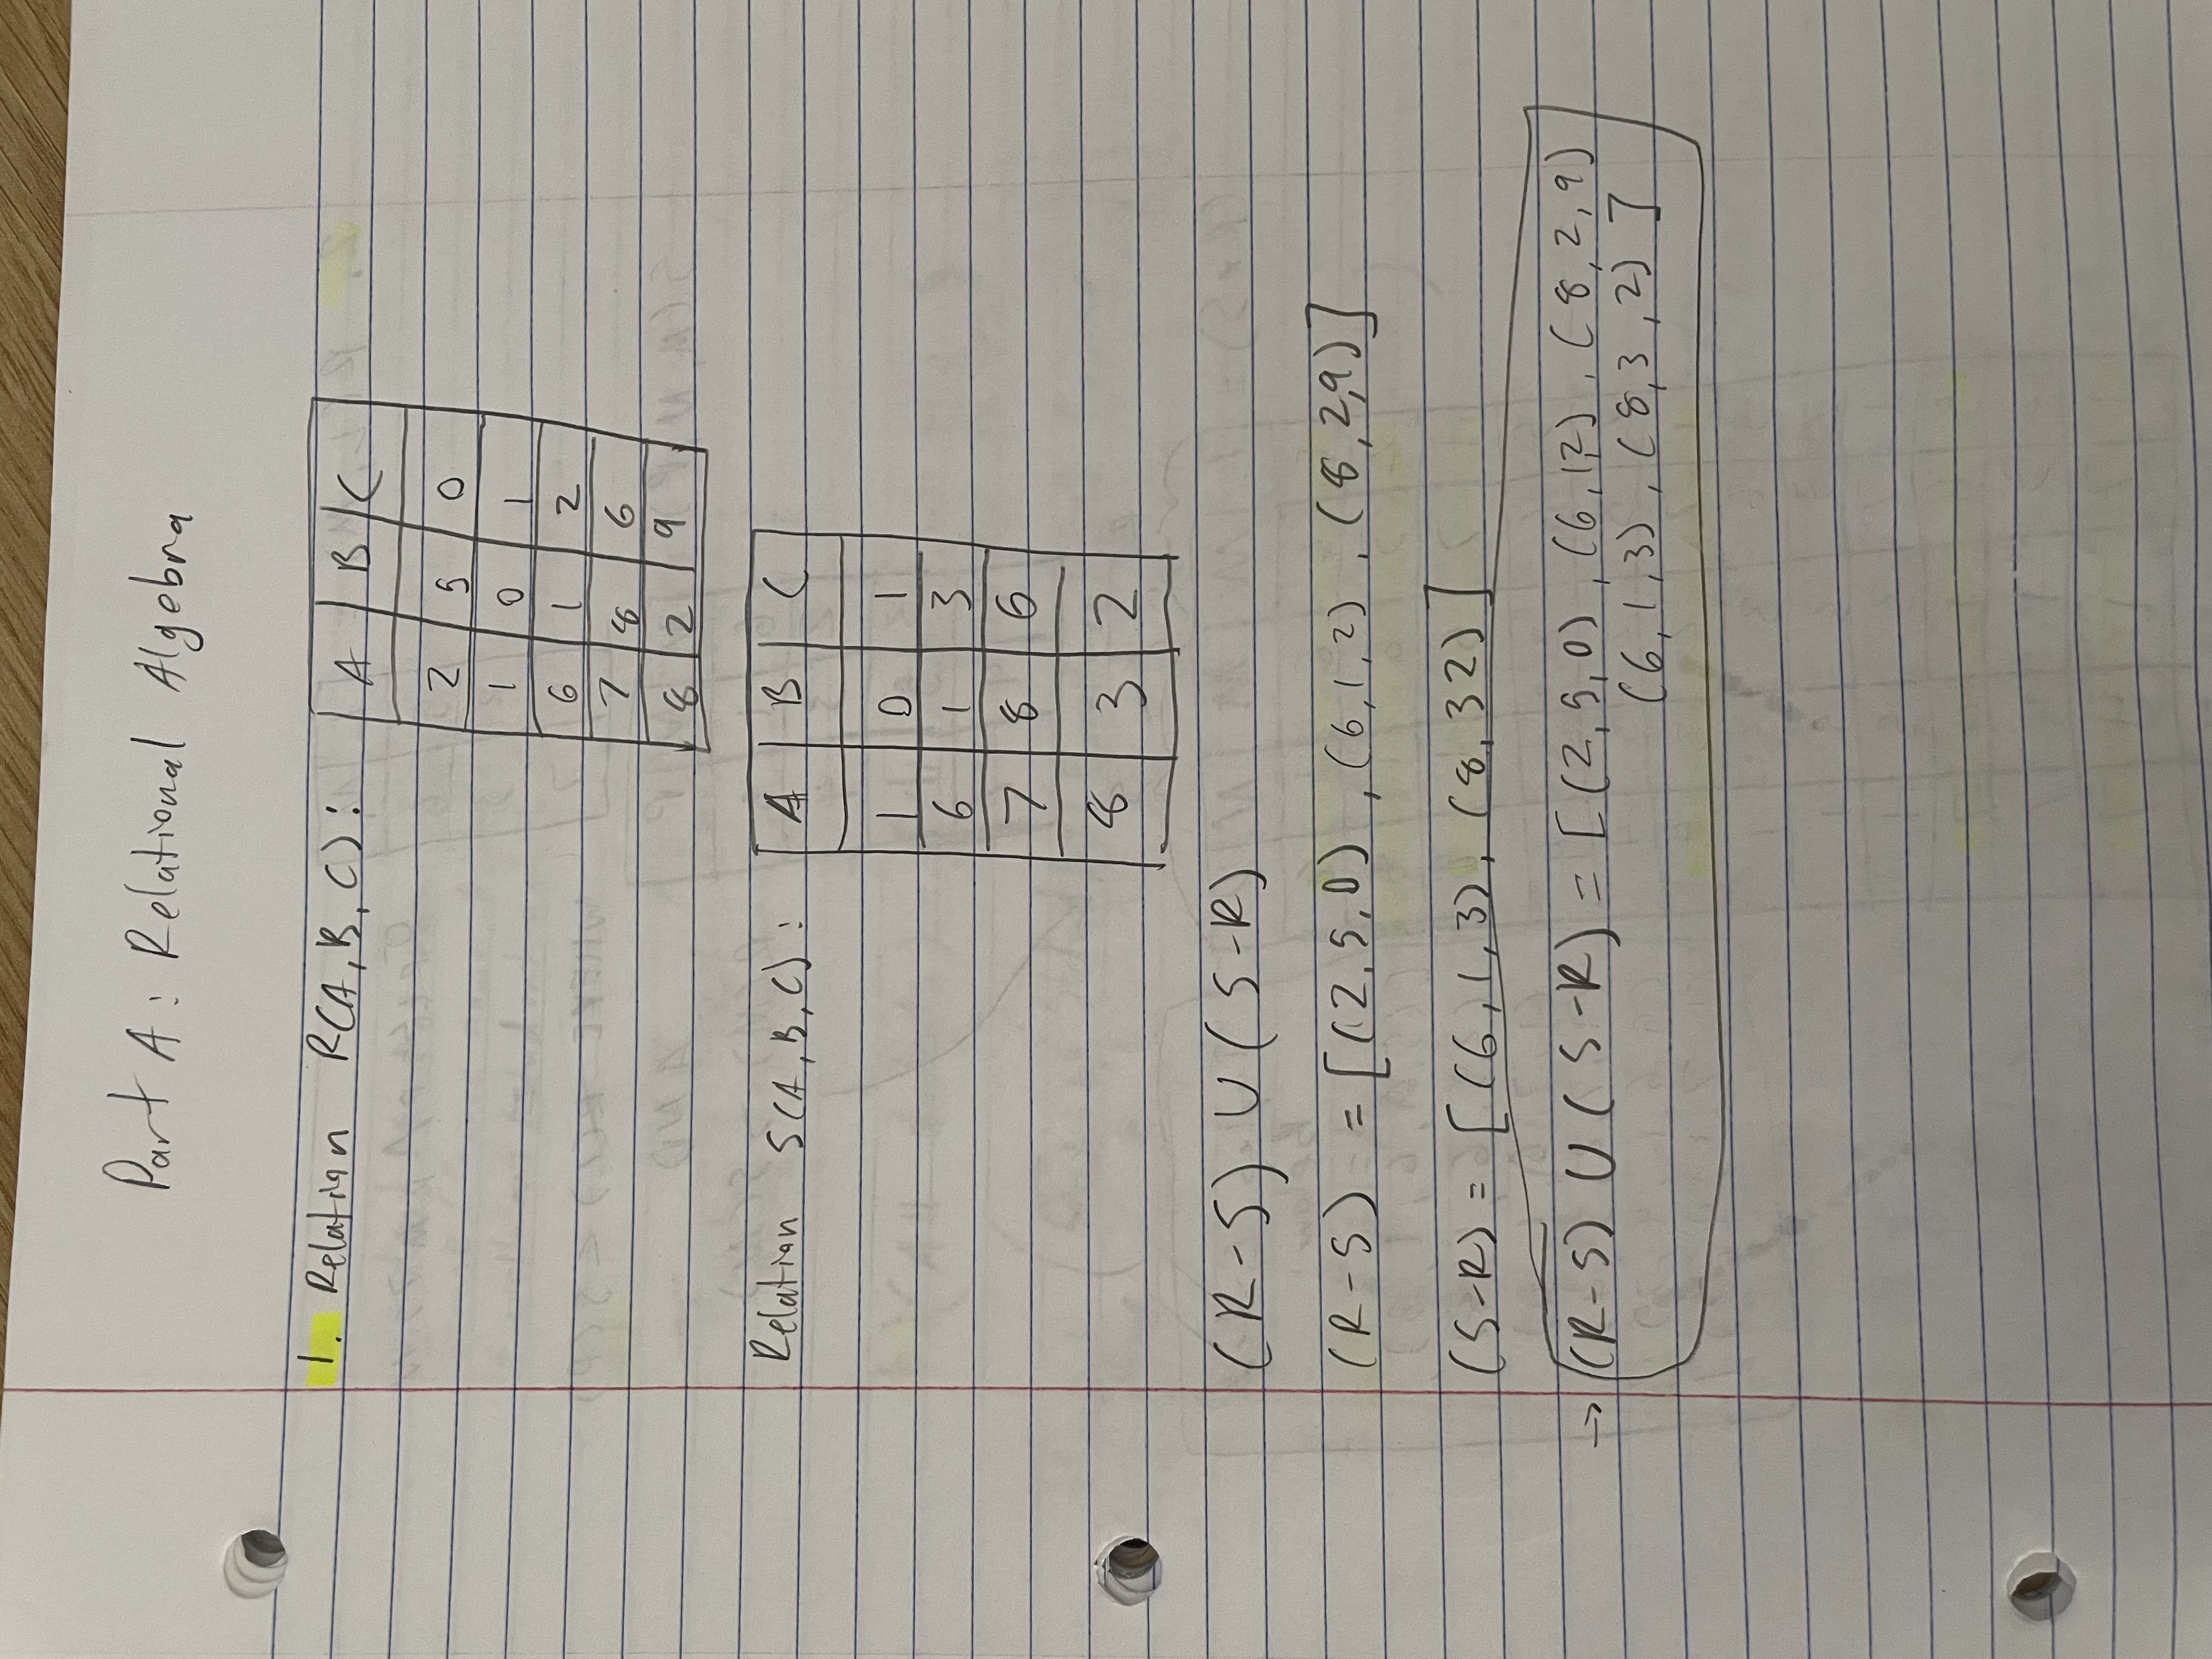 Part A: Relational Algebra
1. Relation R(A, B, C):
A B C
2 5 0
1 0 1
6 1 2
7 8 6
8 2 9
Relation S(A, B, C):
A B C
1 0 1
6 1 3
7 8 6
8 3 2
(R-S) ∪ (S-R)
(R-S) = [(2,5,0), (6,1,2), (8,2,9)]
(S-R) = [(6,1,3), (8,32)]
→ (R-S) ∪ (S-R) = [(2,5,0), (6,1,2), (8,2,9)
(6,1,3), (8,3,2)]